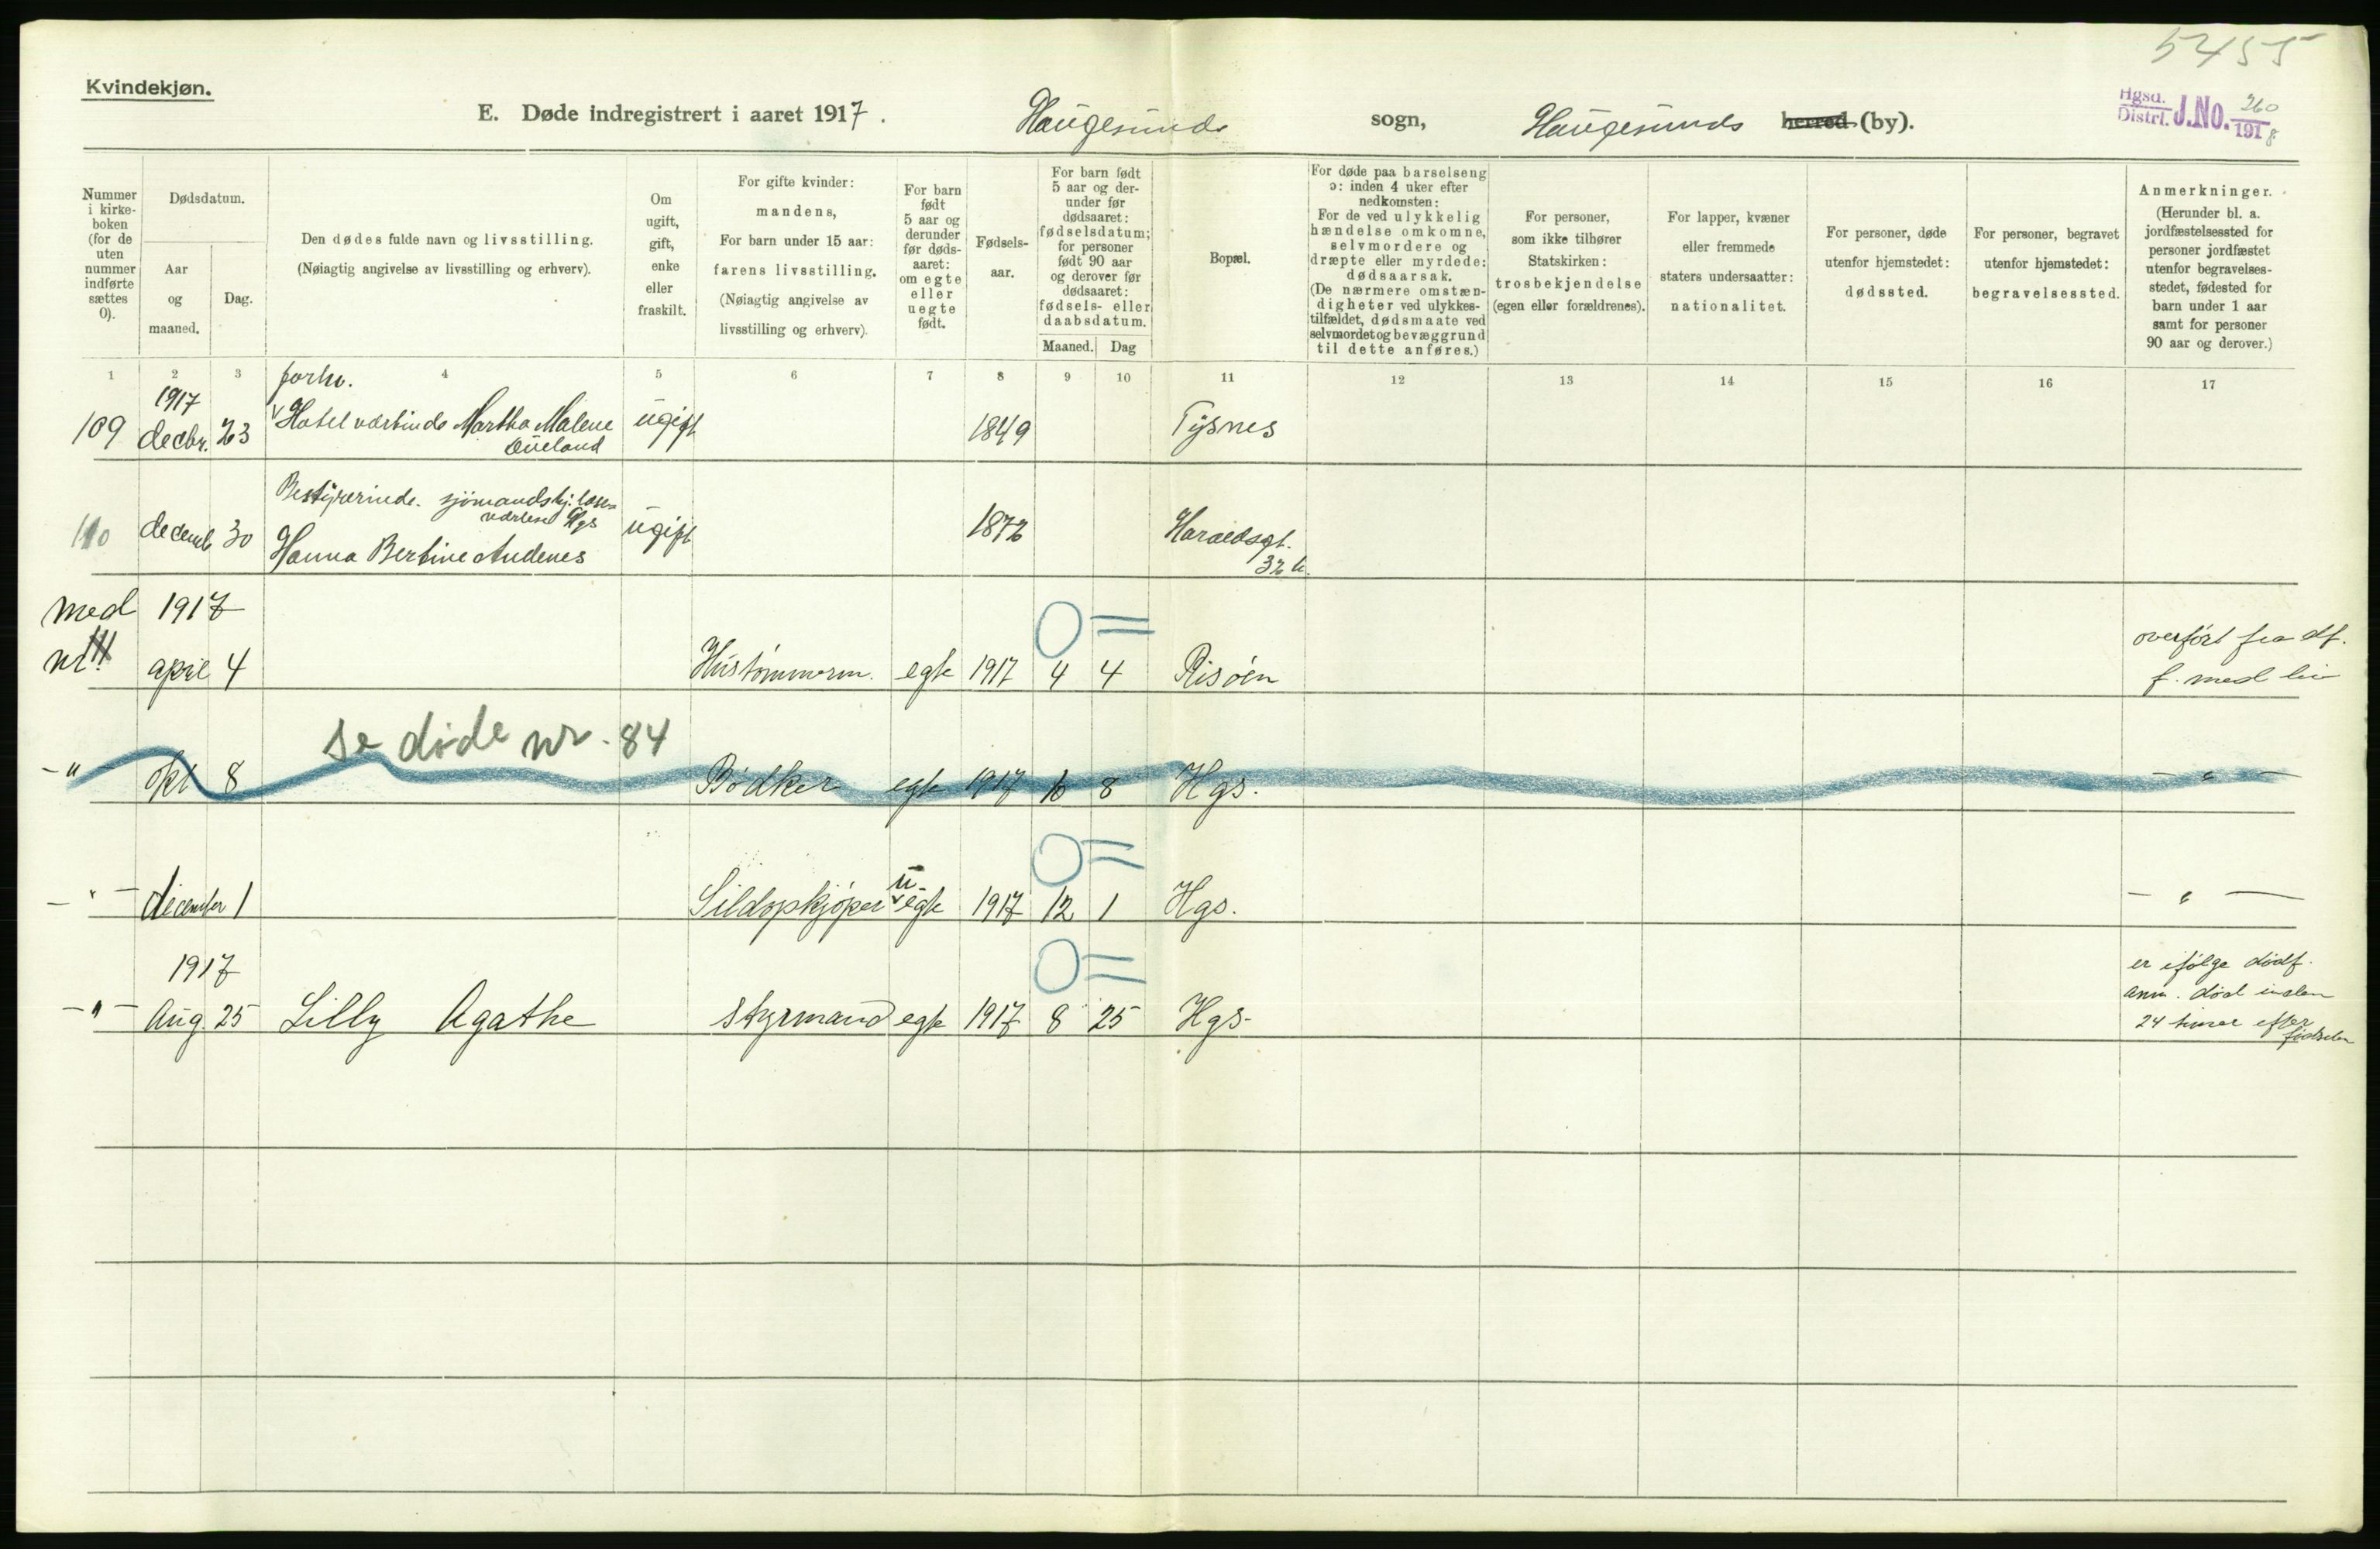 5455
Kvindekjøn.
E. Døde indregistrert i aaret 1917. Haugesunds sogn, Haugesunds herred (by).
Hgsd. Distrl. J.No. 260 1918
Nummer i kirkeboken (for de uten nummer indførte sættes 0).
Dødsdatum.
Aar og maaned.
Dag.
Den dødes fulde navn og livsstilling.
(Nøiagtig angivelse av livsstilling og erhverv).
Om ugift, gift, enke eller fraskilt.
For gifte kvinder: mandens,
For barn under 15 aar: farens livsstilling.
(Nøiagtig angivelse av livsstilling og erhverv).
For barn født 5 aar og derunder før dødsaaret: om egte eller uegte født.
Fødselsaar.
For barn født 5 aar og derunder før dødsaaret: fødselsdatum; for personer født 90 aar og derover før dødsaaret: fødsels- eller daabsdatum.
Maaned. Dag
Bopæl.
For døde paa barselseng ɔ: inden 4 uker efter nedkomsten:
For de ved ulykkelig hændelse omkomne, selvmordere og dræpte eller myrdede: dødsaarsak.
(De nærmere omstændigheter ved ulykkestilfældet, dødsmaate ved selvmordet og bevæggrund til dette anføres.)
For personer, som ikke tilhører Statskirken: trosbekjendelse (egen eller forældrenes).
For lapper, kvæner eller fremmede staters undersaatter: nationalitet.
For personer, døde utenfor hjemstedet: dødssted.
For personer, begravet utenfor hjemstedet: begravelsessted.
Anmerkninger.
(Herunder bl. a. jordfæstelsessted for personer jordfæstet utenfor begravelsesstedet, fødested for barn under 1 aar samt for personer 90 aar og derover.)
1 2 3 4 5 6 7 8 9 10 11 12 13 14 15 16 17
1917 forhv.
109 decbr. 23 Hotelværtinde Martha Malene ugift 1849 Tysnes
Bestyrerinde. sjömandshj.
110 decemb 30 Hanna Bertine Andenes ugift 1872 Haraldsgt. 32 b.
med 1917 0 =
nr. april 4 Hustømmerm. egte 1917 4 4 Risøen overført fra df. f. med liv
se døde nr. 84
-"- okt 8 Bødker egte 1917 10 8 Hgs. - " -
0 =
-"- december 1 Sildopkjøper u- egte 1917 12 1 Hgs. - " -
1917 0 =
-"- Aug. 25 Lilly Agathe styrmand egte 1917 8 25 Hgs-
er ifølge dødf.
anm. død inden
24 timer efter
fødselen